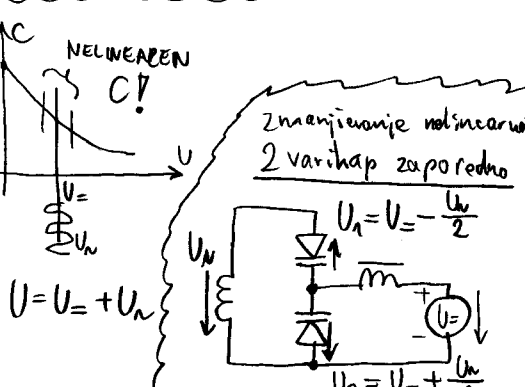 C
NELINEAREN
C!
U
U=
U~
U = U= + U~
zmanjševanje
2 varikap zaporedno
U1 = U= - U~/2
U~
+
U=
-
U2 = U= + U~